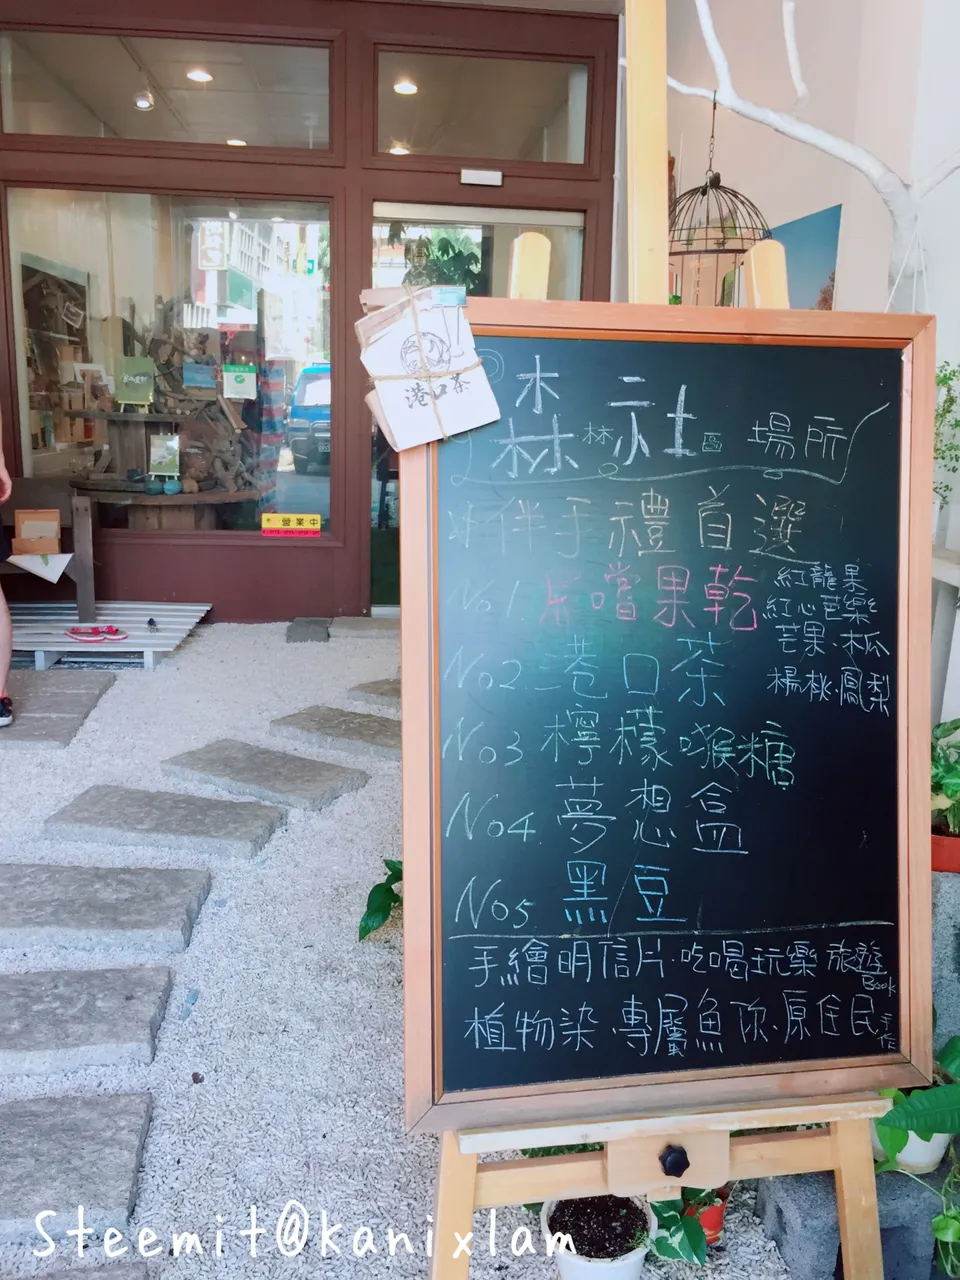 港口茶
森林社區 場所
好伴手禮首選
No.1 片嚐果乾
紅龍果
紅心芭樂
芒果·木瓜
楊桃·鳳梨
No2 港口茶
No3 檸檬喉糖
No4. 夢想盒
No5 黑豆
手繪明信片·吃喝玩樂 旅遊Book
植物染·專屬魚你·原住民手作
營業中
Steemit@kanixlam